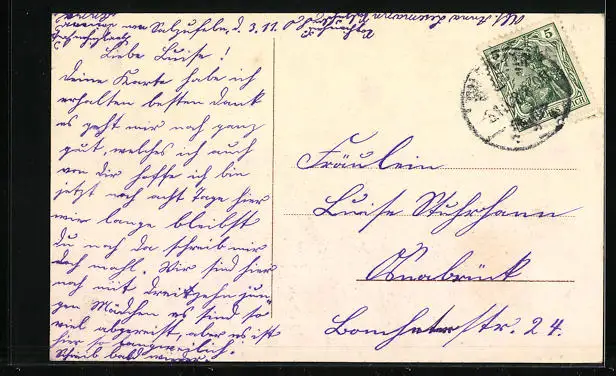 Salzuflen, d. 3.11.
Liebe Luise!
Deine Karte habe ich
erhalten besten Dank
es geht mir noch ganz
gut, welches ich auch
von dir hoffe ich bin
jetzt noch acht Tage hier
wie lange bleibst
du noch da schreib mir
doch mahl. Wir sind hier
noch mit dreitzehn jun-
gen Mädchen es sind so
viel abgereist, aber es ist
hier so langweilich.
Schreib bald wieder.
Anna
5
Fräulein
Luise Stuhrhann
Osnabrück
str. 24.